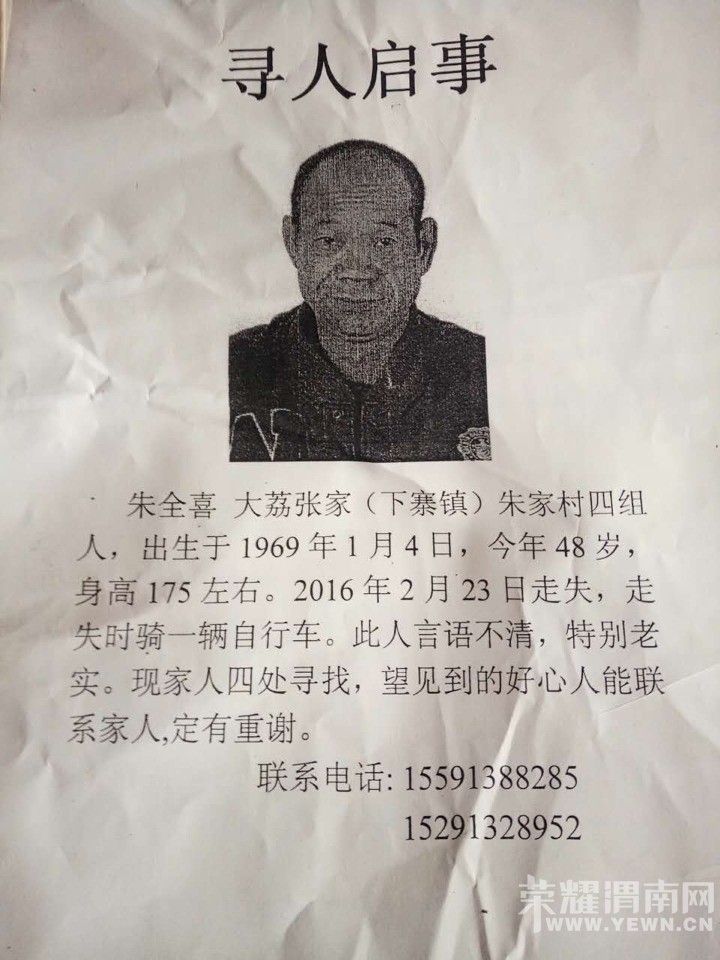 寻人启事
朱全喜 大荔张家（下寨镇）朱家村四组
人，出生于1969年1月4日，今年48岁，
身高175左右。2016年2月23日走失，走
失时骑一辆自行车。此人言语不清，特别老
实。现家人四处寻找，望见到的好心人能联
系家人,定有重谢。
联系电话: 15591388285
15291328952
荣耀渭南网
WWW.YEWN.CN